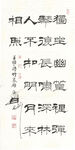 獨坐幽篁裏彈
琴復長嘯深林
人不知明月來
相照